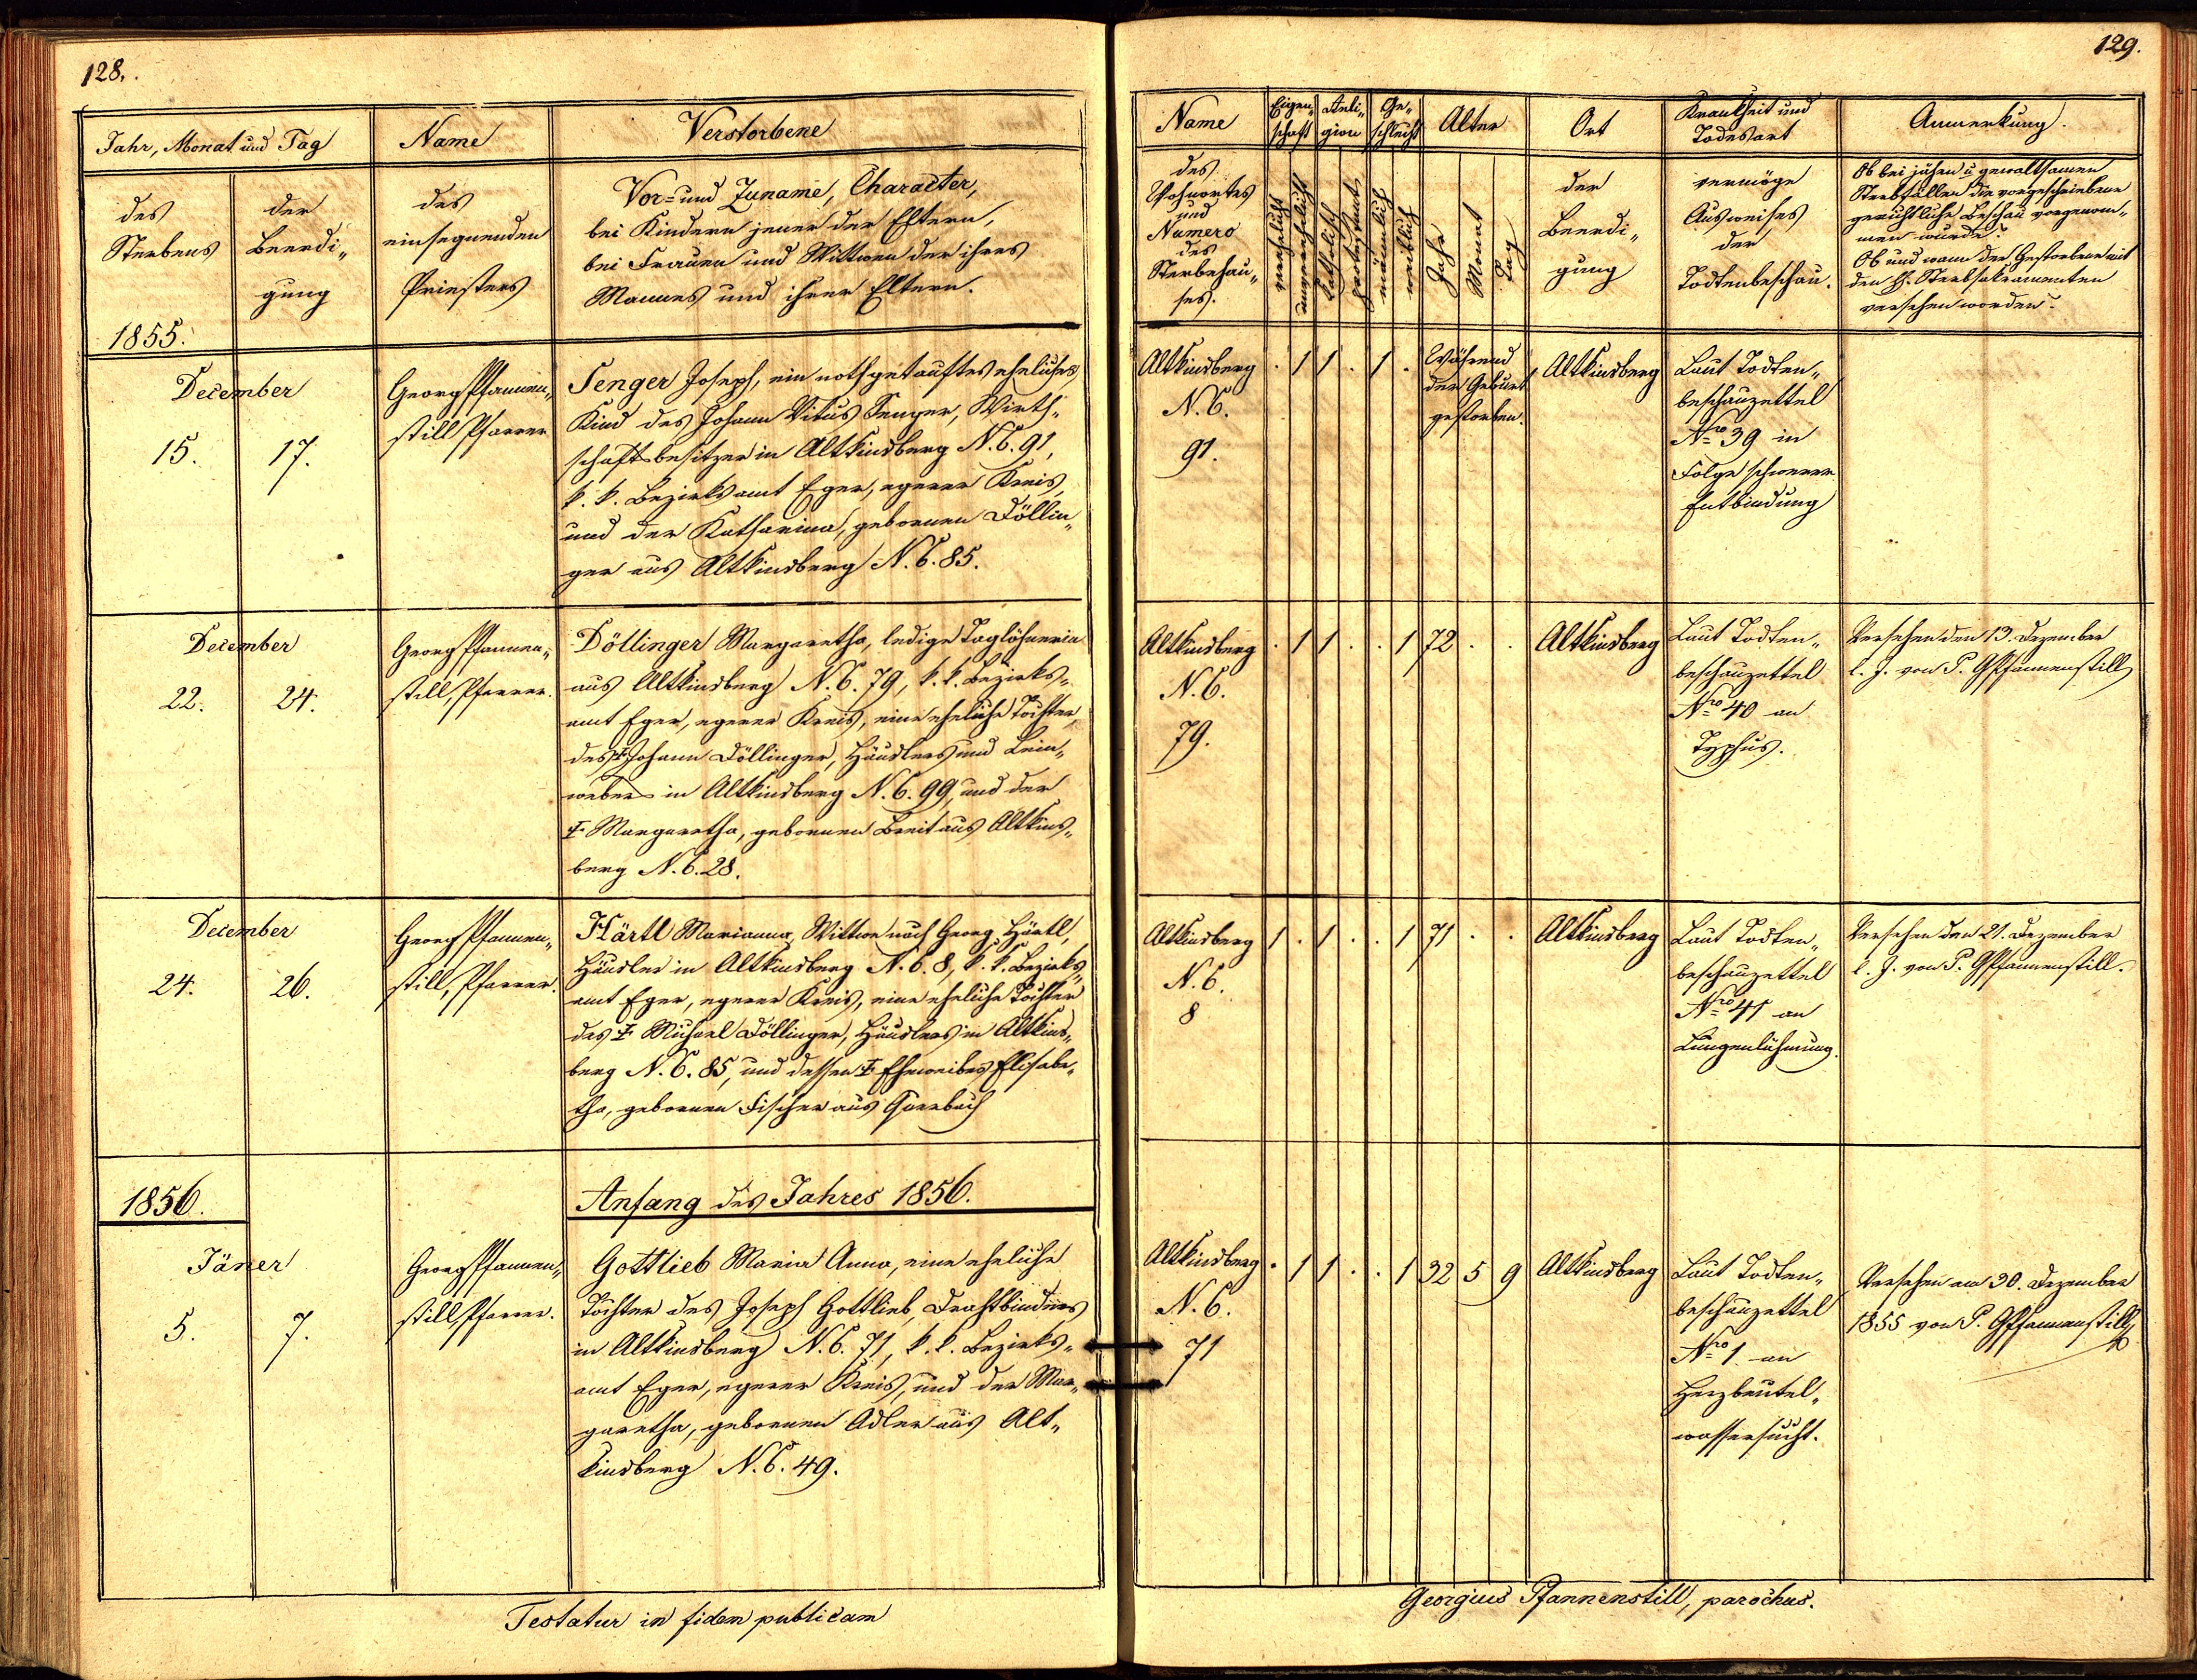 128.
Jahr, Monat und Tag
Name
Verstorbene
des
Sterbens
der
Beerdi„
gung
des
einsegnenden
Priesters
Vor- und Zuname, Character,
bei Kindern jener der Eltern,
bei Frauen und Wittwen der ihres
Mannes und ihrer Eltern.
1855.
December
15.
17.
Georg Pfannen„
still Pfarrer
Senger Joseph, ein nothgetauftes eheliches
Kind des Johann Vitus Senger, Wirth„
schaftsbesitzer in Altkinsberg N.C. 91,
k. k. Bezirksamt Eger, egerer Kreis,
und der Katharina, gebornen Döllin„
ger aus Altkinsberg N.C. 85.
December
22.
24.
Georg Pfannen„
still, Pfarrer.
Döllinger Margaretha, ledige Taglöhnerin
aus Altkinsberg N.C. 79, k. k. Bezirks„
amt Eger, egerer Kreis, eine eheliche Tochter
des † Johann Döllinger, Häuslers und Lein„
webers in Altkinsberg N.C. 99, und der
† Margaretha, gebornen Breit aus Altkins„
berg N.C. 28.
December
24.
26.
Georg Pfannen„
still, Pfarrer.
Härtl Marianna, Wittwe nach Georg Härtl,
Häusler in Altkinsberg N.C. 8, k. k. Bezirks„
amt Eger, egerer Kreis, eine eheliche Tochter
des † Michael Döllinger, Häuslers in Altkins„
berg N.C. 85, und dessen † Eheweibes Elisabe„
tha, gebornen Fischer aus
1856.
Anfang des Jahres 1856.
Jäner
5.
7.
Georg Pfannen„
still, Pfarrer.
Gottlieb Maria Anna, eine eheliche
Tochter des Joseph Gottlieb, Drahtbinders
in Altkinsberg N.C. 71, k. k. Bezirks„
amt Eger, egerer Kreis, und der Mar„
garetha, gebornen Adler aus Alt„
kinsberg N.C. 49.
Testatur in fidem publicam
129.
Name
Eigen„
schaft
Reli„
gion
Ge„
schlecht
Alter
Ort
Krankheit und
Todesart
Anmerkung.
des
Wohnortes
und
Numero
des
Sterbehau„
ses.
verehelicht
unverehelicht
katholisch
protestant.
männlich
weiblich
Jahr
Monat
Tag
der
Beerdi„
gung
vermöge
Ausweises
der
Todtenbeschau.
Ob bei jähen u gewaltsamen
Sterbfällen die vorgeschriebene
gerichtliche Beschau vorgenom„
men wurde?
Ob und wann der Gestorbene mit
den hh. Sterbsakramenten
versehen worden.
Altkinsberg
N.C.
91.
. 1 1 . 1 .
Während
der Geburt
gestorben.
Altkinsberg
Laut Todten„
beschauzettel
Nro 39 in
Folge schwerer
Entbindung
Altkinsberg
N.C.
79.
. 1 1 . . 1 72 . .
Altkinsberg
Laut Todten„
beschauzettel
Nro 40 an
Typhus.
Versehen den 13. Dezember
l. J. von P. GPfannenstill
Altkinsberg
N.C.
8
1 . 1 . . 1 71 . .
Altkinsberg
Laut Todten„
beschauzettel
Nro 41 an
Lungenlähmung.
Versehen den 21. Dezember
l. J. von P. GPfannenstill.
Altkinsberg
N.C.
71
. 1 1 . . 1 32 5 9
Altkinsberg
Laut Todten„
beschauzettel
Nro 1 an
Herzbeutel„
wassersucht.
Versehen am 30. Dezember
1855 von P. GPfannenstill
Georgius Pfannenstill, parochus.